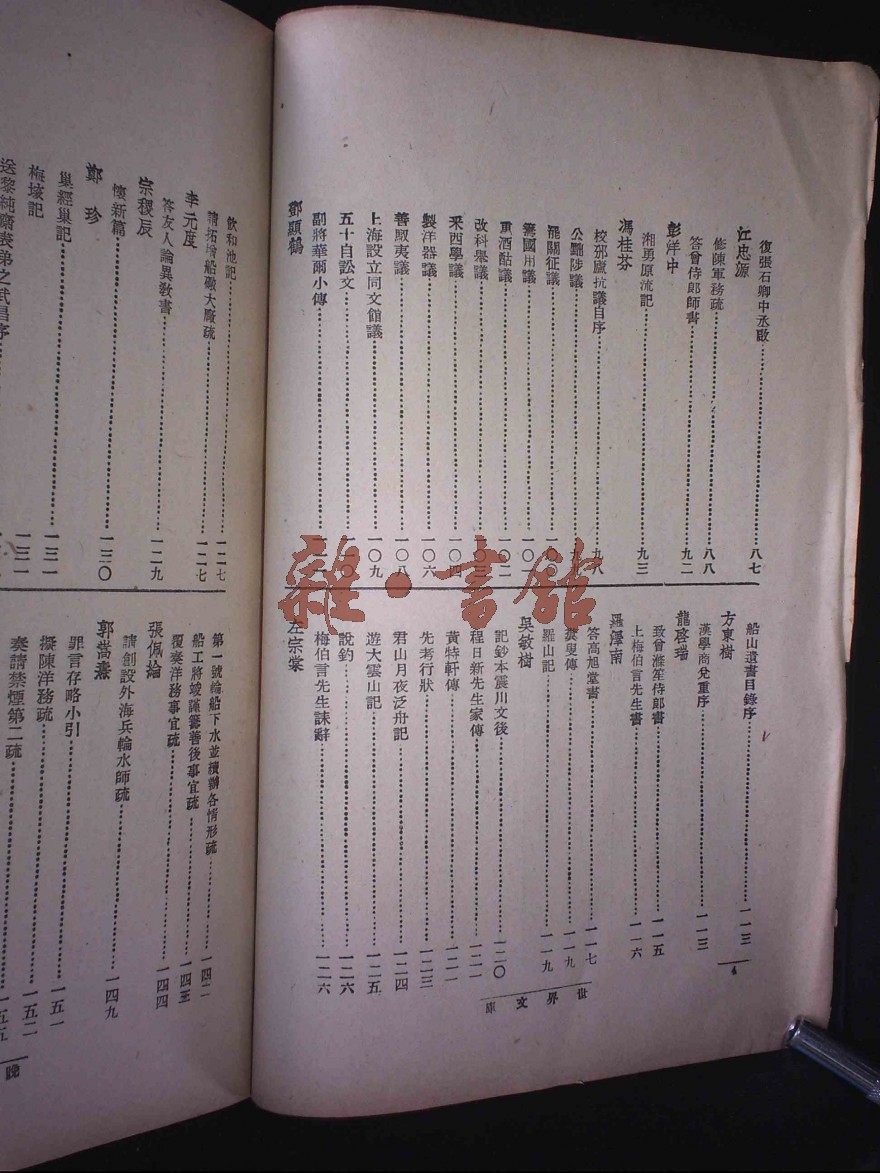 復張石卿中丞啟……八七
江忠源
條陳軍務疏……八八
答曾侍郎師書……九二
彭洋中
湘勇原流記……九三
馮桂芬
校邠廬抗議自序……九八
公黜陟議……九
罷關征議……一〇〇
籌國用議……一〇一
重酒酤議……一〇二
改科舉議……一〇三
采西學議……一〇四
製洋器議……一〇六
善馭夷議……一〇八
上海設立同文館議……一〇九
五十自訟文……一一〇
副將華爾小傳
鄧顯鶴
船山遺書目錄序……一一三
方東樹
漢學商兌重序……一一三
龍啓瑞
致曾滌笙侍郎書……一一五
上梅伯言先生書……一一六
羅澤南
答高旭堂書……一一七
叟傳……一一九
羅山記……一一九
吳敏樹
記鈔本震川文後……一二〇
程日新先生家傳……一二一
黃特軒傳……一二一
先考行狀……一二三
君山月夜泛舟記……一二四
遊大雲山記……一二五
說釣……一二六
梅伯言先生誄辭……一二六
左宗棠
四
世界文庫
飲和池記……一二七
請拓增船礮大廠疏……一二七
李元度
答友人論異教書……一二九
宗稷辰
懷新篇……一三〇
鄭珍
巢經巢記……一三一
梅垓記……一三一
送黎純齋表弟之武昌序
第一號輪船下水並續辦各情形疏……一四二
船工將竣謹籌善後事宜疏……一四三
覆奏洋務事宜疏……一四四
張佩綸
請創設外海兵輪水師疏……一四九
郭嵩燾
罪言存略小引……一五一
擬陳洋務疏……一五二
奏請禁煙第二疏……一五五
晚
雜·書館